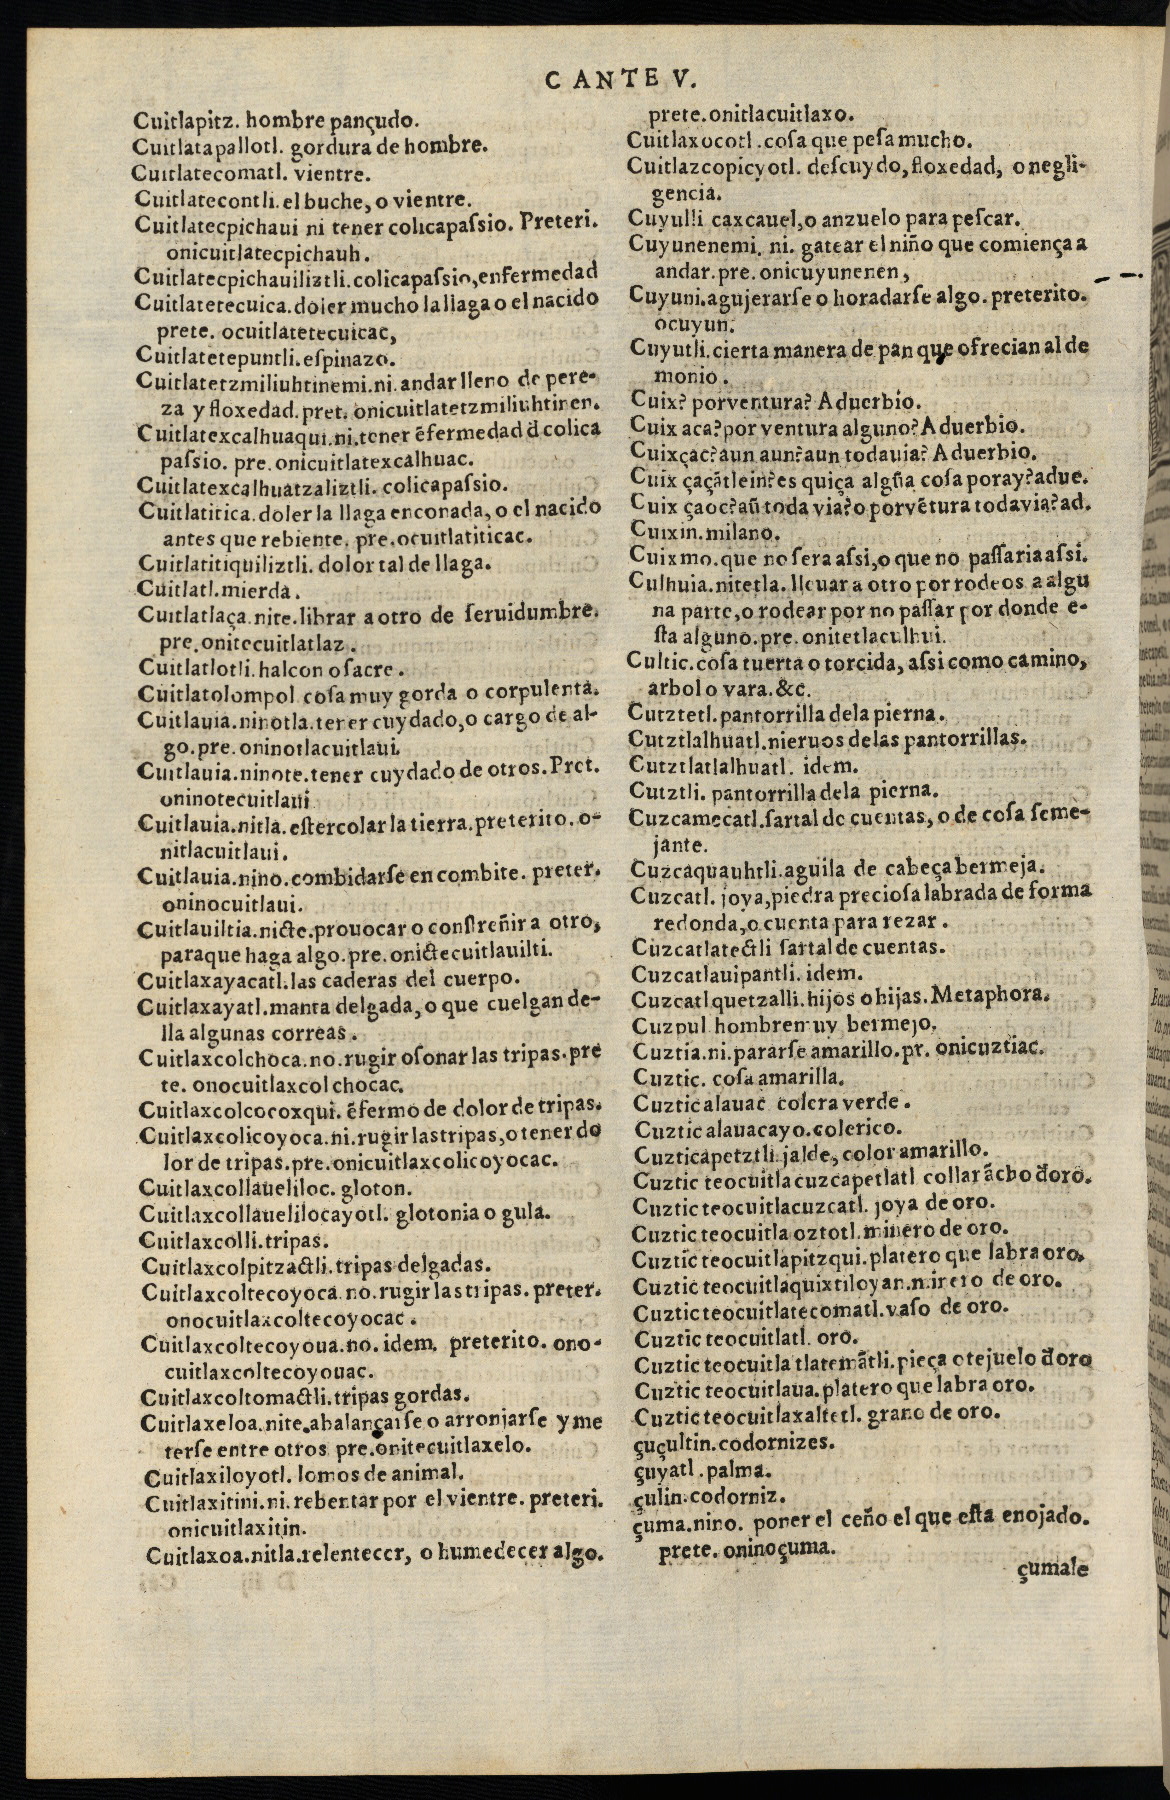 C ANTE V.
Cuitlapitz. hombre pançudo.
Cuitlatapallotl. gordura de hombre.
Cuitlatecomatl. vientre.
Cuitlatecontli. el buche, o vientre.
Cuitlatecpichaui ni tener colicapaſsio. Preteri.
onicuitlatecpichauh.
Cuitlatecpichauiliztli. colicapaſsio, enfermedad
Cuitlatetecuica. doler mucho la llaga o el nacido
prete. ocuitlatetecuicac,
Cuitlatetepuntli. eſpinazo.
Cuitlatetzmiliuhtinemi. ni. andar lleno de pere-
za y floxedad. pret. onicuitlatetzmiliuhtinen.
Cuitlatexcalhuaqui. ni. tener ẽfermedad d̃ colica
paſsio. pre. onicuitlatexcalhuac.
Cuitlatexcalhuatzaliztli. colicapaſsio.
Cuitlatitica. doler la llaga enconada, o el nacido
antes que rebiente. pre. ocuitlatiticac.
Cuitlatitiquiliztli. dolor tal de llaga.
Cuitlatl. mierda.
Cuitlatlaça. nite. librar a otro de ſeruidumbre.
pre. onitecuitlatlaz.
Cuitlatlotli. halcon o ſacre.
Cuitlatolompol coſa muy gorda o corpulenta.
Cuitlauia. ninotla. tener cuydado, o cargo de al-
go. pre. oninotlacuitlaui.
Cuitlauia. ninote. tener cuydado de otros. Pret.
oninotecuitlaui
Cuitlauia. nitla. eſtercolar la tierra. preterito. o-
nitlacuitlaui.
Cuitlauia. nino. combidarſe en combite. preter.
oninocuitlaui.
Cuitlauiltia. nicte. prouocar o conſtreñir a otro,
paraque haga algo. pre. onictecuitlauilti.
Cuitlaxayacatl. las caderas del cuerpo.
Cuitlaxayatl. manta delgada, o que cuelgan de-
lla algunas correas.
Cuitlaxcolchoca. no. rugir o ſonar las tripas. pre
te. onocuitlaxcolchocac.
Cuitlaxcolcocoxqui. ẽfermo de dolor de tripas.
Cuitlaxcolicoyoca. ni. rugir las tripas, o tener do
lor de tripas. pre. onicuitlaxcolicoyocac.
Cuitlaxcollaueliloc. gloton.
Cuitlaxcollauelilocayotl. glotonia o gula.
Cuitlaxcolli. tripas.
Cuitlaxcolpitzactli. tripas delgadas.
Cuitlaxcoltecoyoca. no. rugir las tripas. preter.
onocuitlaxcoltecoyocac.
Cuitlaxcoltecoyoua. no. idem. preterito. ono-
cuitlaxcoltecoyouac.
Cuitlaxcoltomactli. tripas gordas.
Cuitlaxeloa. nite. abalançarſe o arronjarſe y me
terſe entre otros pre. onitecuitlaxelo.
Cuitlaxiloyotl. lomos de animal.
Cuitlaxitini. ni. rebentar por el vientre. preteri.
onicuitlaxitin.
Cuitlaxoa. nitla. relentecer, o humedecer algo.
prete. onitlacuitlaxo.
Cuitlaxocotl. coſa que peſa mucho.
Cuitlazcopicyotl. deſcuydo, floxedad, o negli-
gencia.
Cuyulli caxcauel, o anzuelo para peſcar.
Cuyunenemi. ni. gatear el niño que comiença a
andar. pre. onicuyunenen,
Cuyuni. agujerarſe o horadarſe algo. preterito.
ocuyun.
Cuyutli. cierta manera de pan que ofrecian al de
monio.
Cuix? porventura? Aduerbio.
Cuix aca? por ventura alguno? Aduerbio.
Cuixçac? aun aun? aun todauia? Aduerbio.
Cuix çaçãtlein? es quiça algũa coſa por ay? adue.
Cuix çaoc? aũ toda via? o porvẽtura todavia? ad.
Cuixin. milano.
Cuixmo. que no ſera aſsi, o que no paſſaria aſsi.
Culhuia. nitetla. lleuar a otro por rodeos a algu
na parte, o rodear por no paſſar por donde e-
ſta alguno. pre. onitetlaculhui.
Cultic. coſa tuerta o torcida, aſsi como camino,
arbol o vara. &c.
Cutztetl. pantorrilla dela pierna.
Cutztlalhuatl. nieruos delas pantorrillas.
Cutztlatlalhuatl. idem.
Cutztli. pantorrilla dela pierna.
Cuzcamecatl. ſartal de cuentas, o de coſa ſeme-
jante.
Cuzcaquauhtli. aguila de cabeça bermeja.
Cuzcatl. joya, piedra precioſa labrada de forma
redonda, o cuenta para rezar.
Cuzcatlatectli ſartal de cuentas.
Cuzcatlauipantli. idem.
Cuzcatl quetzalli. hijos o hijas. Metaphora.
Cuzpul hombre muy bermejo.
Cuztia. ni. pararſe amarillo. pr. onicuztiac.
Cuztic. coſa amarilla.
Cuztic alauac colera verde.
Cuztic alauacayo. colerico.
Cuzticapetztli. jalde, color amarillo.
Cuztic teocuitlacuzcapetlatl collar ãcho d̃oro.
Cuztic teocuitlacuzcatl. joya de oro.
Cuztic teocuitla oztotl. minero de oro.
Cuztic teocuitlapitzqui. platero que labra oro.
Cuztic teocuitlaquixtiloyan. minero de oro.
Cuztic teocuitlatecomatl. vaſo de oro.
Cuztic teocuitlatl. oro.
Cuztic teocuitla tlatemãtli. pieça o tejuelo d̃oro
Cuztic teocuitlaua. platero que labra oro.
Cuztic teocuitlaxaltetl. grano de oro.
çuçultin. codornizes.
çuyatl. palma.
çulin. codorniz.
çuma. nino. poner el ceño el que eſta enojado.
prete. oninoçuma.
çumale